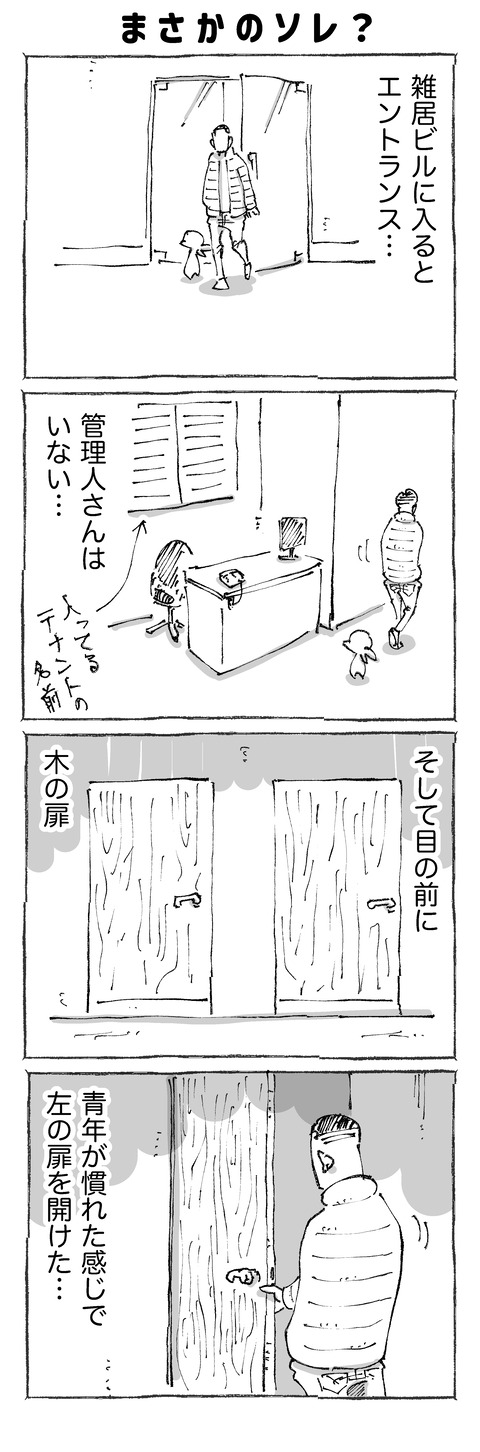 まさかのソレ？
雑居ビルに入ると
エントランス…
管理人さんは
いない…
入ってる
テナントの
名前
そして目の前に
木の扉
青年が慣れた感じで
左の扉を開けた…